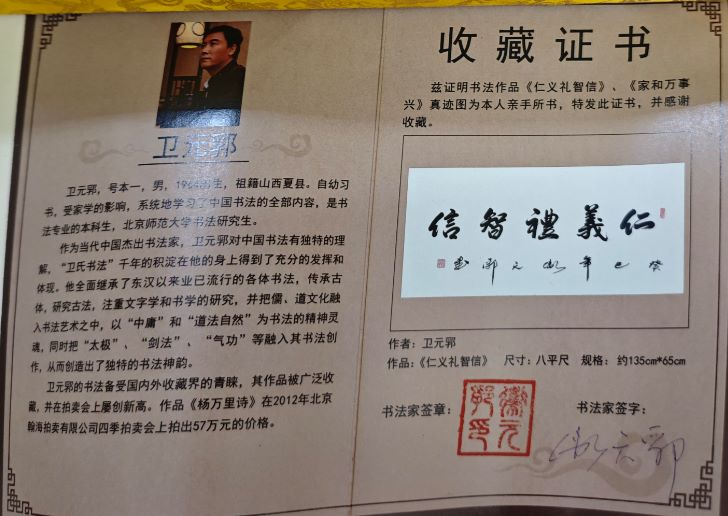 卫元郭
卫元郭，号本一，男，1964年生，祖籍山西夏县。自幼习
书，受家学的影响，系统地学习了中国书法的全部内容，是书
法专业的本科生，北京师范大学书法研究生。
作为当代中国杰出书法家，卫元郭对中国书法有独特的理
解，“卫氏书法”千年的积淀在他的身上得到了充分的发挥和
体现。他全面继承了东汉以来业已流行的各体书法，传承古
体，研究古法，注重文字学和书学的研究，并把儒、道文化融
入书法艺术之中，以“中庸”和“道法自然”为书法的精神灵
魂，同时把“太极”、“剑法”、“气功”等融入其书法创
作，从而创造出了独特的书法神韵。
卫元郭的书法备受国内外收藏界的青睐，其作品被广泛收
藏，并在拍卖会上屡创新高。作品《杨万里诗》在2012年北京
翰海拍卖有限公司四季拍卖会上拍出57万元的价格。
收藏证书
兹证明书法作品《仁义礼智信》、《家和万事
兴》真迹图为本人亲手所书，特发此证书，并感谢
收藏。
信智禮義仁
癸巳年衛元郭書
作者：卫元郭
作品：《仁义礼智信》 尺寸：八平尺 规格：约135cm*65cm
书法家签章：
衛元郭印
书法家签字：
衛元郭